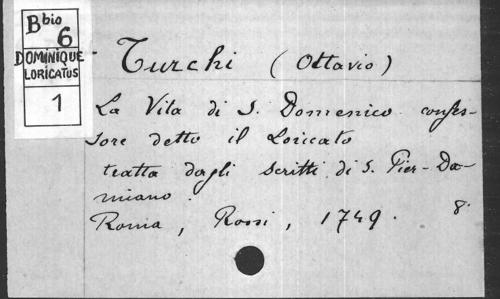 Bbio
6
DOMINIQUE
LORICATUS
1
Turchi (Ottavio)
La Vita di S. Domenico confes-
sore detto il Loricato
tratta dagli scritti di S. Pier-Da-
miano.
Roma, Rossi, 1749. 8.